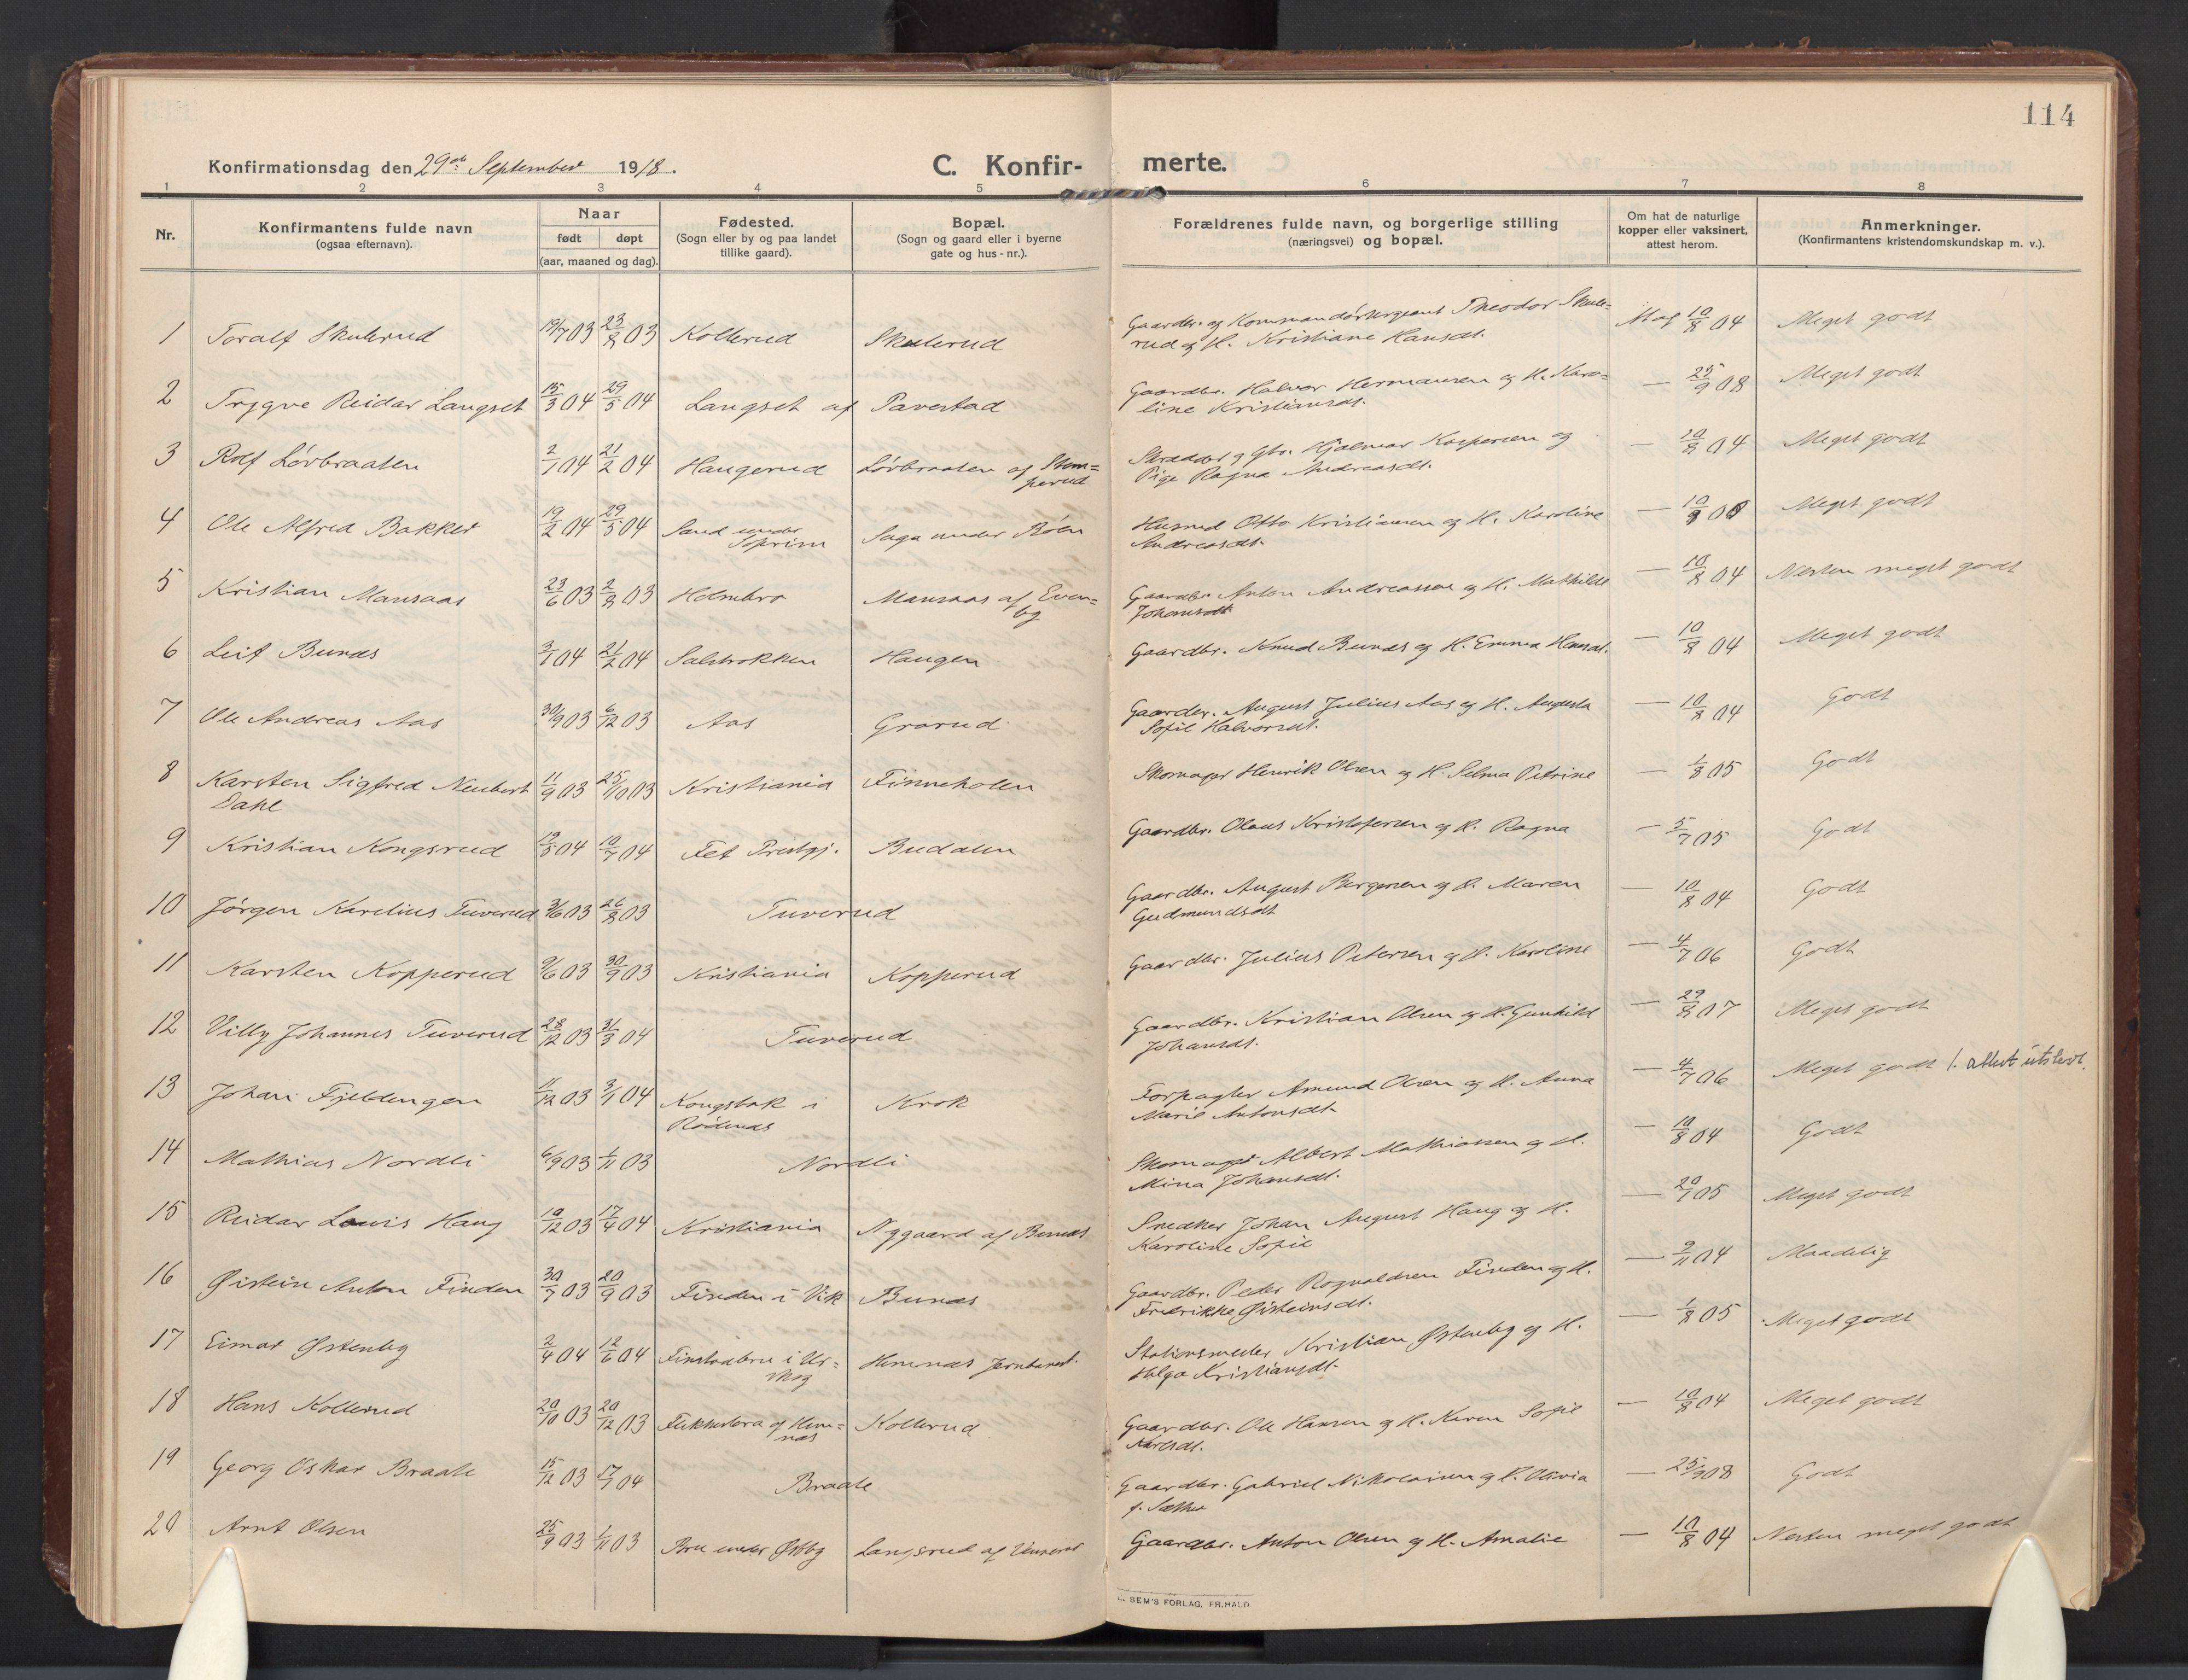 114
Konfirmationsdag den 29de September 1918.
C. Konfir- merte.
1 2 3 4 5 6 7 8
Nr.
Konfirmantens fulde navn
(ogsaa efternavn).
Naar
født døpt
(aar, maaned og dag).
Fødested.
(Sogn eller by og paa landet
tillike gaard).
Bopæl.
(Sogn og gaard eller i byerne
gate og hus-nr.).
Forældrenes fulde navn, og borgerlige stilling
(næringsvei) og bopæl.
Om hat de naturlige
kopper eller vaksinert,
attest herom.
Anmerkninger.
(Konfirmantens kristendomskundskap m. v.).
1 Toralf Skulerud 19/7 03 23/8 03 Kollerud Skulerud Gaardbr. og Kommandérsergeant Theodor Skule=
rud og H. Kristiane Hansdt. 10/8 04 Meget godt
2 Trygve Reidar Langset 15/3 04 29/5 04 Langset af Tavestad Gaardbr. Halvor Hermansen og H. Karo=
line Kristiansdt. — 25/9 08 Meget godt
3 Rolf Lövbraaten 2/1 04 21/2 04 Haugerud Lövbraaten af Skom=
perud Skrædder og Gbr. Hjalmar Kaspersen og
Pige Ragna Andreasdt. — 10/8 04 Meget godt
4 Ole Alfred Bakker 19/2 04 29/5 04 Sand under
Soprim Saga under Böen Husmd Otto Kristiansen og H. Karoline
Andreasdt. — Meget godt
5 Kristian Mansaas 23/6 03 2/8 03 Holmbro Mansaas af Even=
by Gaardbr. Anton Andreassen og H. Mathilde
Johansdt. — 10/8 04 Nesten meget godt
6 Leif Bunes 3/1 04 21/2 04 Salsbakken Haugen Gaardbr. Knud Bunæs og H. Emma Hansdt. — 10/8 04 Meget godt
7 Ole Andreas Aas 30/9 03 6/12 03 Aas Grorud Gaardbr. August Julius Aas og H. Augusta
Sofie Halvorsdt. — 10/8 04 Godt
8 Karsten Sigfred Neubert
Dahl 11/9 03 25/10 03 Kristiania Finneholen Skomager Henrik Olsen og H. Selma Petrine — 1/8 05 Godt
9 Kristian Kongsrud 04 10/7 04 Fet Prestgj. Budalen Gaardbr. Olaus Kristofersen og H. Ragna — 5/7 05 Godt
10 Jørgen Karelius Tuverud 3/6 03 26/8 03 Tuverud Gaardbr. August Bergersen og H. Maren
Gudmundsdt — 10/8 04 Godt
11 Karsten Kopperud 9/6 03 30/9 03 Kristiania Kopperud Gaardbr. Julius Petersen og H. Karoline — 4/7 06 Godt
12 Villy Johannes Tuverud 28/12 03 31/3 04 Tuverud Gaardbr. Kristian Olsen og H. Gunhild
Johansdt. — 29/8 07 Meget godt
13 Johan Fjeldengen 11/12 03 3/1 04 Kongsbak i
Rödenæs Krok Forpagter Amund Olsen og H. Anna
Marie Antonsdt. — 4/7 06 Meget godt /. attest utstedt.
14 Mathias Nordli 6/9 03 1/11 03 Nordli Skomager Albert Mathiassen og H.
Mina Johansdt. — 10/8 04 Godt
15 Reidar Louis Haug 10/12 03 17/4 04 Kristiania Nygaard af Bunæs Snedker Johan August Haug og H.
Karoline Sofie — 05 Meget godt
16 Øistein Anton Finden 30/7 03 20/9 03 Finden i Vik Bunæs Gaardbr. Peder Rognaldsen Finden og H.
Fredrikke Øisteinsdt. — 9/11 04 Maadelig
17 Eimar Østenby 2/4 04 12/6 04 Finstadbru i Ur=
skog Hemnæs Jernbanest. Stationsmester Kristian Østenby og H.
Helga Kristiansdt. — 1/8 05 Meget godt
18 Hans Kollerud 20/10 03 20/12 03 Fukkesbra af Hem=
næs Kollerud Gaardbr. Ole Hansen og H. Karen Sofie
Karlsdt. — 10/8 04 Meget godt
19 Georg Oskar Braate 15/12 03 17/1 04 Braate Gaardbr. Gabriel Nikolaisen og H. Olivia
f. Sæther — 25/9 08 Godt
20 Arnt Olsen 25/9 03 1/11 03 Bru under Østby Langsrud af Gaardbr. Anton Olsen og H. Amalie — 10/8 04 Nesten meget godt
SEM'S FORLAG, FR.HALD